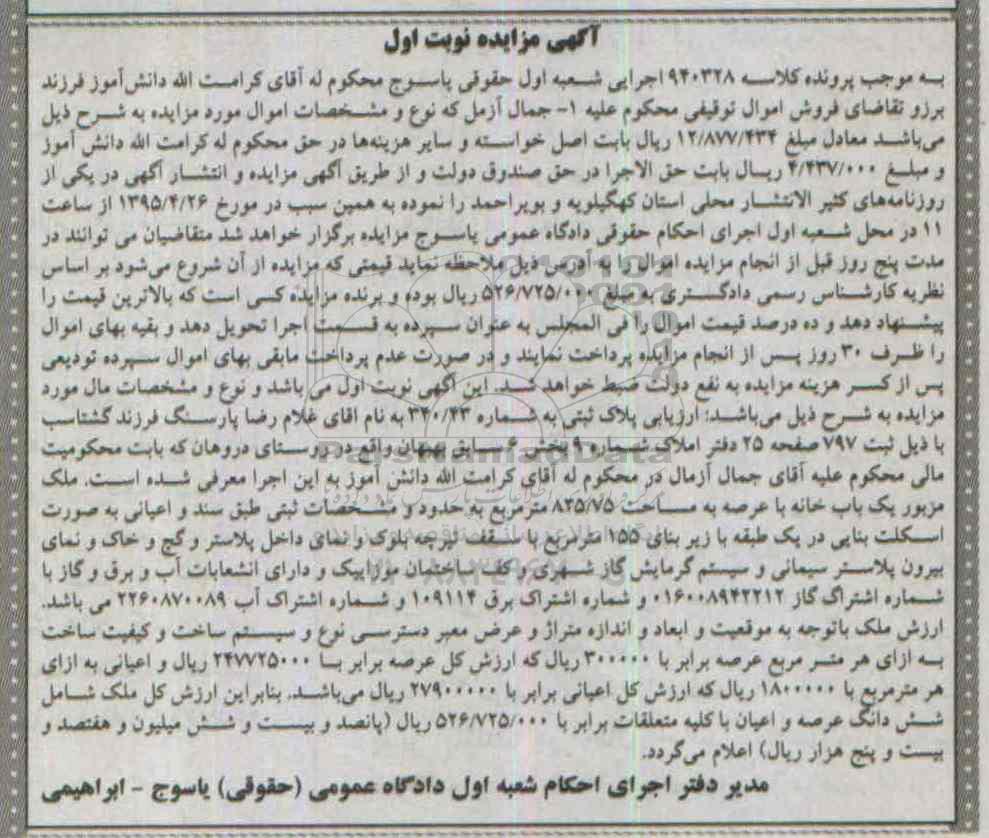 آگهی مزایده نوبت اول
به موجب پرونده کلاسه ۹۴۰۳۲۸ اجرایی شعبه اول حقوقی یاسوج محکوم له آقای کرامت الله دانش‌آموز فرزند
برزو تقاضای فروش اموال توقیفی محکوم علیه ۱- جمال آزمل که نوع و مشخصات اموال مورد مزایده به شرح ذیل
می‌باشد معادل مبلغ ۱۲/۸۷۷/۴۳۴ ریال بابت اصل خواسته و سایر هزینه‌ها در حق محکوم له کرامت الله دانش آموز
و مبلغ ۴/۴۳۷/۰۰۰ ریال بابت حق الاجرا در حق صندوق دولت و از طریق آگهی مزایده و انتشار آگهی در یکی از
روزنامه‌های کثیر الانتشار محلی استان کهگیلویه و بویراحمد را نموده به همین سبب در مورخ ۱۳۹۵/۴/۲۶ از ساعت
۱۱ در محل شعبه اول اجرای احکام حقوقی دادگاه عمومی یاسوج مزایده برگزار خواهد شد متقاضیان می توانند در
مدت پنج روز قبل از انجام مزایده اموال را به آدرس ذیل ملاحظه نماید قیمتی که مزایده از آن شروع می‌شود بر اساس
نظریه کارشناس رسمی دادگستری به مبلغ ۵۲۶/۷۲۵/۰۰۰ ریال بوده و برنده مزایده کسی است که بالاترین قیمت را
پیشنهاد دهد و ده درصد قیمت اموال را فی المجلس به عنوان سپرده به قسمت اجرا تحویل دهد و بقیه بهای اموال
را ظرف ۳۰ روز پس از انجام مزایده پرداخت نمایند و در صورت عدم پرداخت مابقی بهای اموال سپرده تودیعی
پس از کسر هزینه مزایده به نفع دولت ضبط خواهد شد. این آگهی نوبت اول می باشد و نوع و مشخصات مال مورد
مزایده به شرح ذیل می‌باشد: ارزیابی پلاک ثبتی به شماره ۳۴۰/۴۳ به نام اقای غلام رضا پارسنگ فرزند گشتاسب
با ذیل ثبت ۷۹۷ صفحه ۲۵ دفتر املاک شماره ۹ بخش ۶ سابق بهبهان واقع در روستای دروهان که بابت محکومیت
مالی محکوم علیه آقای جمال آزمال در محکوم له آقای کرامت الله دانش آموز به این اجرا معرفی شده است. ملک
مزبور یک باب خانه با عرصه به مساحت ۸۲۵/۷۵ مترمربع به حدود و مشخصات ثبتی طبق سند و اعیانی به صورت
اسکلت بنایی در یک طبقه با زیر بنای ۱۵۵ مترمربع با سقف تیرچه بلوک و نمای داخل پلاستر و گچ و خاک و نمای
بیرون پلاستر سیمانی و سیستم گرمایش گاز شهری و کف ساختمان موزاییک و دارای انشعابات آب و برق و گاز با
شماره اشتراک گاز ۰۱۶۰۰۸۹۴۲۲۱۲ و شماره اشتراک برق ۱۰۹۱۱۴ و شماره اشتراک آب ۲۲۶۰۸۷۰۰۸۹ می باشد.
ارزش ملک باتوجه به موقعیت و ابعاد و اندازه متراژ و عرض معبر دسترسی نوع و سیستم ساخت و کیفیت ساخت
به ازای هر متر مربع عرصه برابر با ۳۰۰۰۰۰ ریال که ارزش کل عرصه برابر با ۲۴۷۷۲۵۰۰۰ ریال و اعیانی به ازای
هر مترمربع با ۱۸۰۰۰۰۰ ریال که ارزش کل اعیانی برابر با ۲۷۹۰۰۰۰۰۰ ریال می‌باشد. بنابراین ارزش کل ملک شامل
شش دانگ عرصه و اعیان با کلیه متعلقات برابر با ۵۲۶/۷۲۵/۰۰۰ ریال (پانصد و بیست و شش میلیون و هفتصد و
بیست و پنج هزار ریال) اعلام می‌گردد.
مدیر دفتر اجرای احکام شعبه اول دادگاه عمومی (حقوقی) یاسوج - ابراهیمی